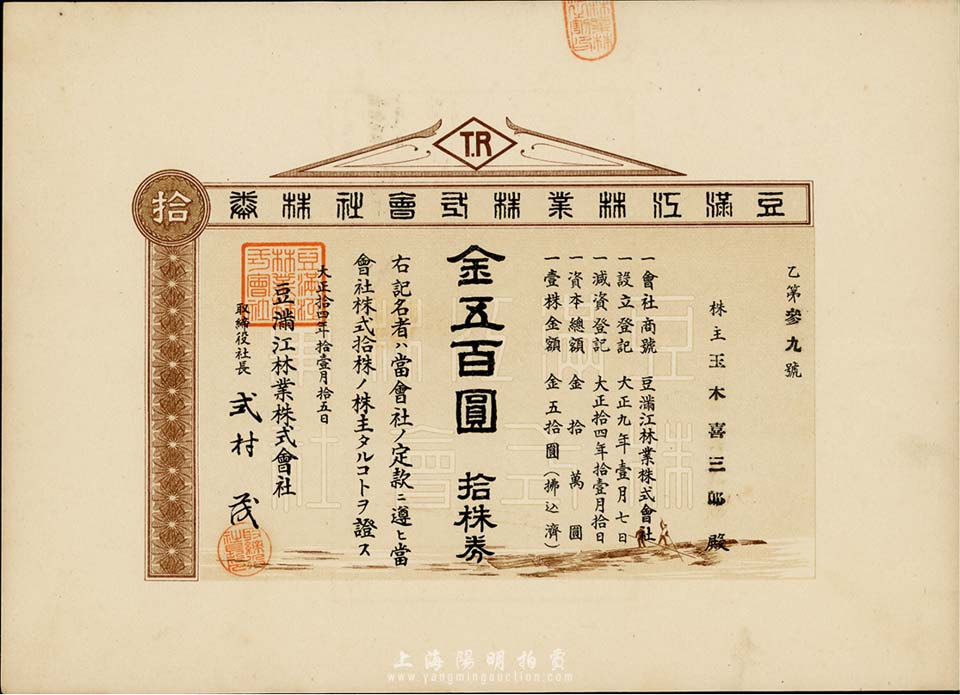 T.R
豆滿江林業株式會社株券
拾
乙第參九號
株主 玉木喜三郎 殿
一會社商號 豆滿江林業株式會社
一設立登記 大正九年壹月七日
一減資登記 大正拾四年拾壹月拾日
一資本總額 金拾萬圓
一壹株金額 金五拾圓(拂込濟)
金五百圓 拾株券
右記名者ハ當會社ノ定款ニ遵ヒ當
會社株式拾株ノ株主タルコトヲ證ス
大正拾四年拾壹月拾五日
豆滿江林業株式會社
取締役社長 式村茂
豆滿江林業株式會社
上海陽明拍賣
www.yangmingauction.com